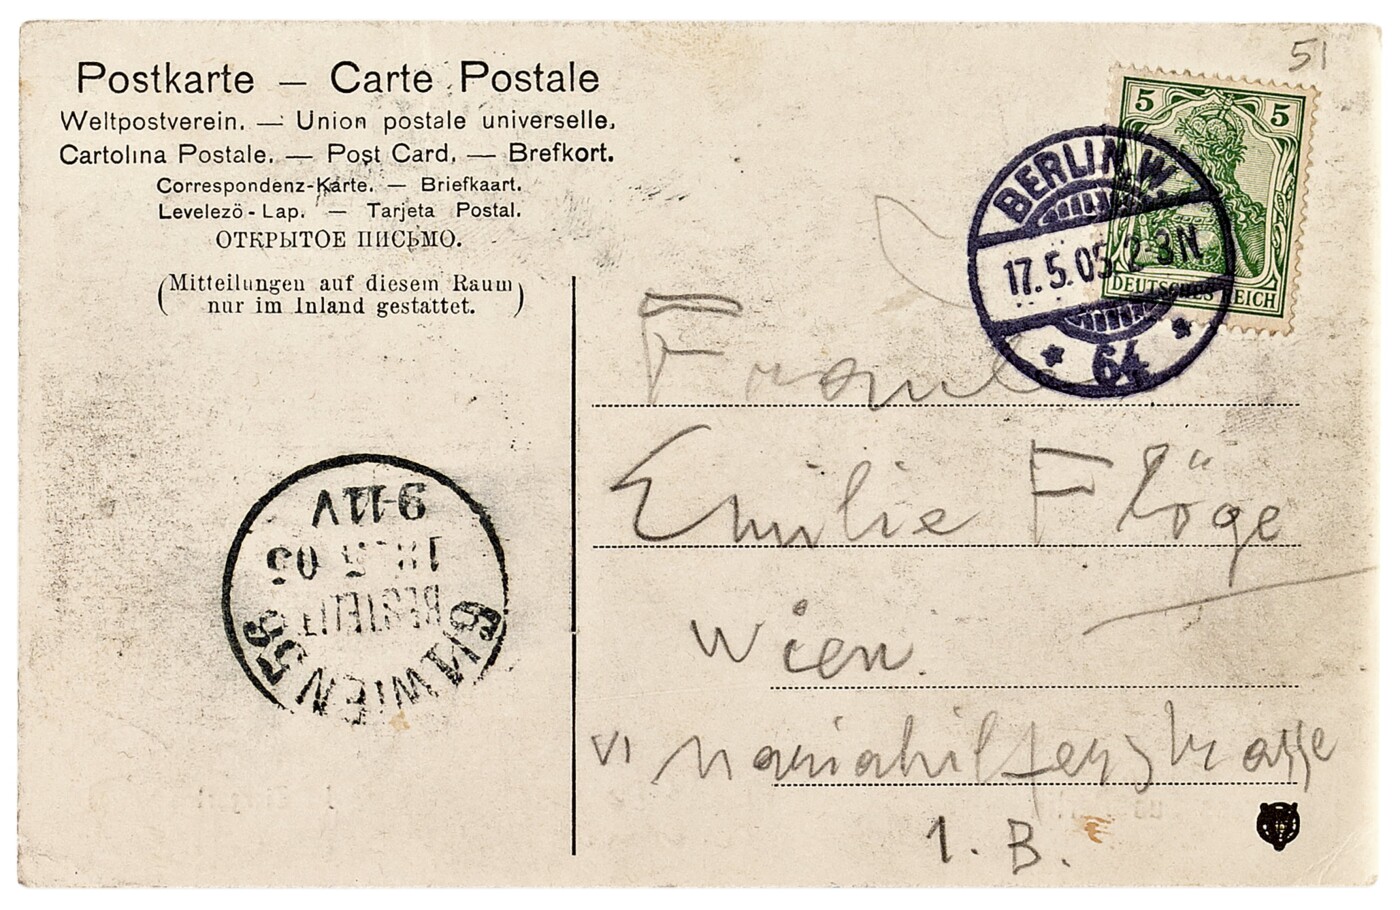 Postkarte — Carte Postale
Weltpostverein. — Union postale universelle.
Cartolina Postale. — Post Card. — Brefkort.
Correspondenz-Karte. — Briefkaart.
Levelező-Lap. — Tarjeta Postal.
ОТКРЫТОЕ ПИСЬМО.
(Mitteilungen auf diesem Raum
nur im Inland gestattet.)
51
5 5
DEUTSCHES REICH
BERLIN. W.
17.5.05. 2-3N.
* 64 *
Fräul
Emilie Flöge
Wien.
VI Mariahilferstrasse
1. B.
9-11V
18 5 05
BESTELLT
6/1 WIEN 56